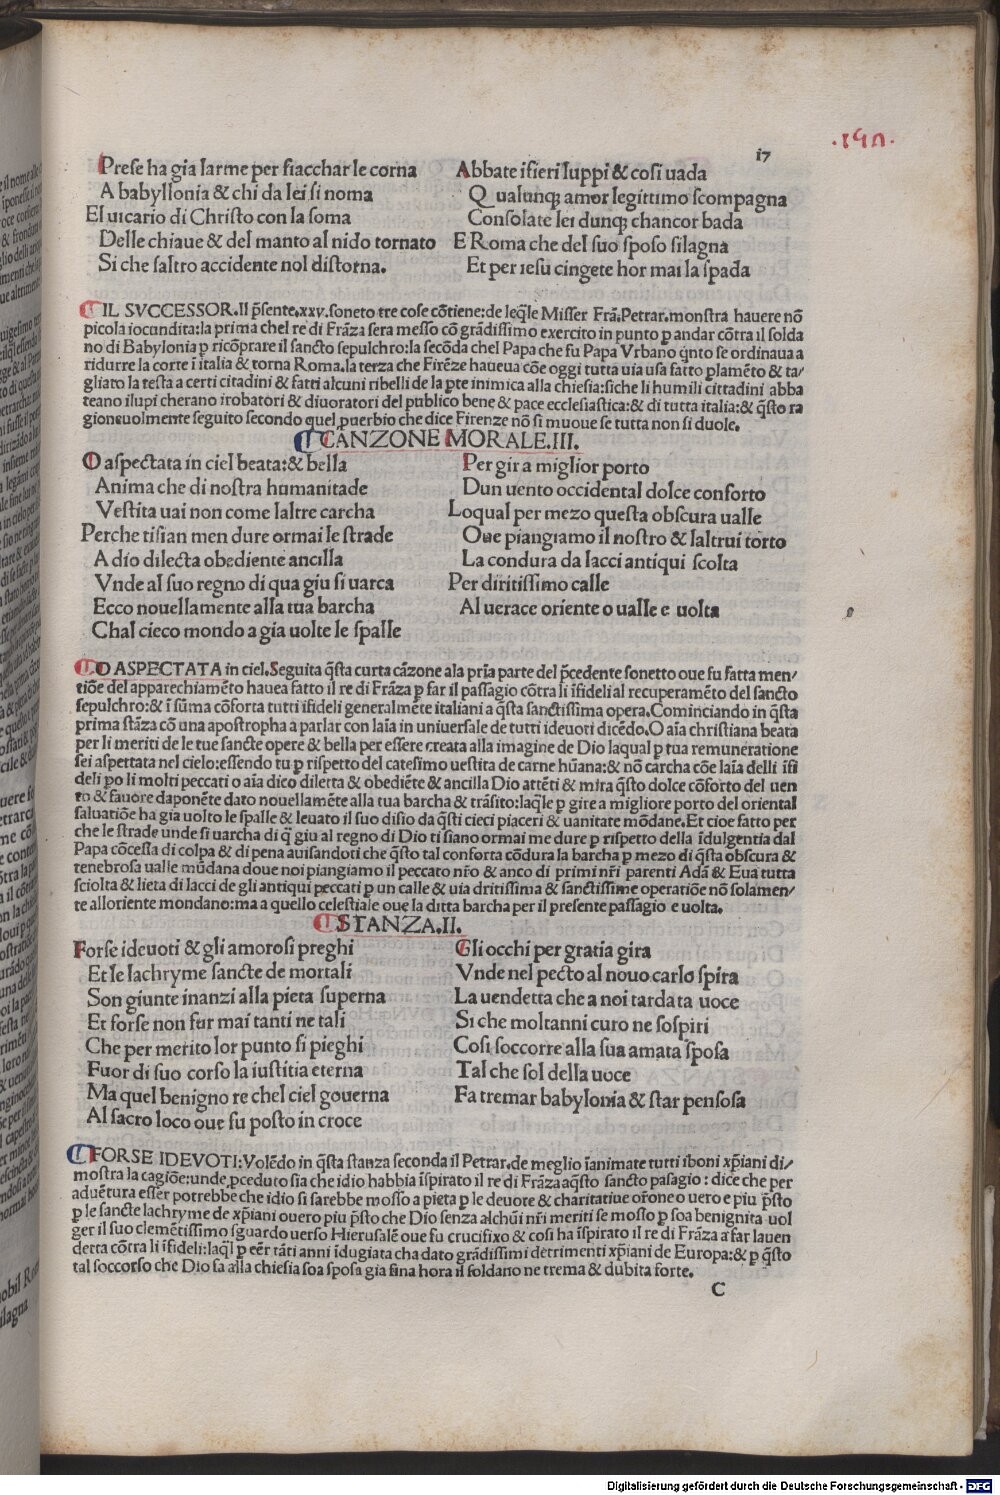 ·190·
i7
Prese ha gia larme per fiacchar le corna
A babyllonia & chi da lei si noma
El uicario di Christo con la soma
Delle chiaue & del manto al nido tornato
Si che saltro accidente nol distorna.
Abbate ifieri luppi & cosi uada
Qualunqꝫ amor legittimo scompagna
Consolate lei dunqꝫ chancor bada
E Roma che del suo sposo silagna
Et per iesu cingete hor mai la spada
IL SVCCESSOR. Il p̄sente.xxv.soneto tre cose cōtiene:de leq̄le Misser Frā.Petrar.monstra hauere nō
picola iocundita:la prima chel re di Frāza sera messo cō grādissimo exercito in punto ꝑ andar cōtra il solda
no di Babylonia ꝑ ricōprare il sancto sepulchro:la secōda chel Papa che fu Papa Vrbano q̄nto se ordinaua a
ridurre la corte ī italia & torna Roma.la terza che Firēze haueua cōe oggi tutta uia usa fatto plamēto & ta/
gliato la testa a certi citadini & fatti alcuni ribelli de la ꝑte inimica alla chiesia:siche li humili cittadini abba
teano ilupi cherano irobatori & diuoratori del publico bene & pace ecclesiastica:& di tutta italia:& q̄sto ra
gioneuolmente seguito secondo quel ꝓuerbio che dice Firenze nō si muoue se tutta non si duole.
CANZONE MORALE.III.
O aspectata in ciel beata:& bella
Anima che di nostra humanitade
Vestita uai non come laltre carcha
Perche tisian men dure ormai le strade
A dio dilecta obediente ancilla
Vnde al suo regno di qua giu si uarca
Ecco nouellamente alla tua barcha
Chal cieco mondo a gia uolte le spalle
Per gir a miglior porto
Dun uento occidental dolce conforto
Loqual per mezo questa obscura ualle
Oue piangiamo il nostro & laltrui torto
La condura da lacci antiqui scolta
Per diritissimo calle
Al uerace oriente o ualle e uolta
O ASPECTATA in ciel.Seguita q̄sta curta cāzone ala pria parte del p̄cedente sonetto oue fu fatta men/
tiōe del apparechiamēto hauea fatto il re di Frāza ꝑ far il passagio cōtra li īfideli al recuperamēto del sancto
sepulchro:& ī sūma cōforta tutti ifideli generalmēte italiani a q̄sta sanctissima opera.Cominciando in q̄sta
prima stāza cō una apostropha a parlar con laīa in uniuersale de tutti ideuoti dicēdo.O aīa christiana beata
per li meriti de le tue sancte opere & bella per essere creata alla imagine de Dio laqual ꝑ tua remuneratione
sei aspettata nel cielo:essendo tu ꝑ rispetto del catesimo uestita de carne hūana:& nō carcha cōe laīa delli īfi
deli ꝑo li molti peccati o aīa dico diletta & obediēte & ancilla Dio attēti & mira q̄sto dolce cōforto del uen
to & fauore daponēte dato nouellamēte alla tua barcha & trāsito:laq̄le ꝑ gire a migliore porto del oriental
saluatiōe ha gia uolto le spalle & leuato il suo disio da q̄sti cieci piaceri & uanitate mōdane.Et cioe fatto per
che le strade unde si uarcha di q̄ giu al regno di Dio ti siano ormai me dure ꝑ rispetto della īdulgentia dal
Papa cōcessa di colpa & di pena auisandoti che q̄sto tal conforta cōdura la barcha ꝑ mezo di q̄sta obscura &
tenebrosa ualle mūdana doue noi piangiamo il peccato nr̄o & anco di primi nr̄i parenti Adā & Eua tutta
sciolta & lieta di lacci de gli antiqui peccati ꝑ un calle & uia dritissima & sanctissime operatiōe nō solamen/
te alloriente mondano:ma a quello celestiale oue la ditta barcha per il presente passagio e uolta.
STANZA.II.
Forse ideuoti & gli amorosi preghi
Et le lachryme sancte de mortali
Son giunte inanzi alla pieta superna
Et forse non fur mai tanti ne tali
Che per merito lor punto si pieghi
Fuor di suo corso la iustitia eterna
Ma quel benigno re chel ciel gouerna
Al sacro loco oue fu posto in croce
Gli occhi per gratia gira
Vnde nel pecto al nouo carlo spira
La uendetta che a noi tardata uoce
Si che moltanni curo ne sospiri
Cosi soccorre alla sua amata sposa
Tal che sol della uoce
Fa tremar babylonia & star pensosa
FORSE IDEVOTI:Volēdo in q̄sta stanza seconda il Petrar.de meglio īanimate tutti iboni xp̄iani di/
mostra la cagiōe:unde ꝓceduto sia che idio habbia īspirato il re di Frāza aq̄sto sancto pasagio:dice che per
aduētura esser potrebbe che idio si sarebbe mosso a pieta ꝑ le deuote & charitatiue or̄one o uero e piu p̄sto
ꝑ le sancte lachryme de xp̄iani ouero piu p̄sto che Dio senza alchūi nr̄i meriti se mosso ꝑ soa benignita uol
ger il suo clemētissimo sguardo uerso Hierusalē oue fu crucifixo & cosi ha īspirato il re di Frāza a far lauen
detta cōtra li īfideli:laq̄l ꝑ eēr tāti anni īdugiata cha dato grādissimi detrimenti xp̄iani de Europa:& ꝑ q̄sto
tal soccorso che Dio fa alla chiesia soa sposa gia fina hora il soldano ne trema & dubita forte.
C
Digitalisierung gefördert durch die Deutsche Forschungsgemeinschaft - DFG